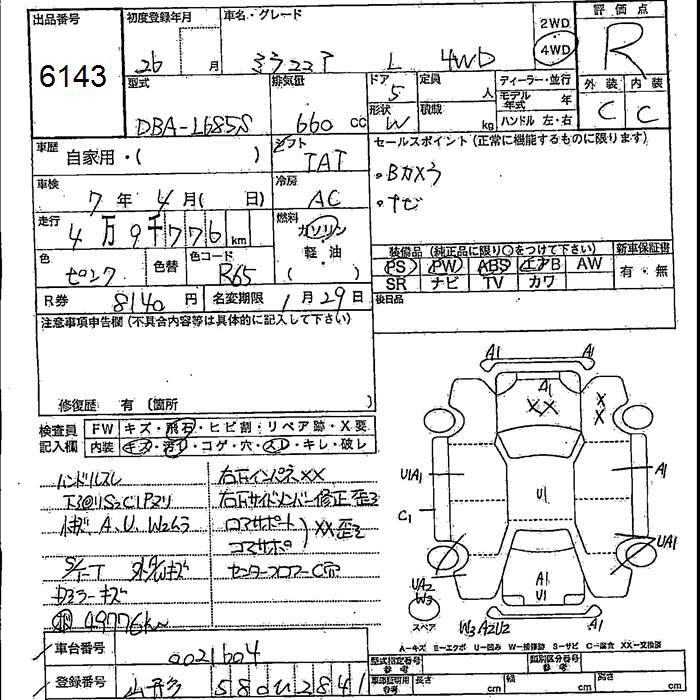 出品番号
6143
初度登録年月
26 月
車名・グレード
ミラココア L 4WD
2WD
4WD
評価点
R
型式
DBA-L685S
排気量
660 cc
ドア
5
形状
W
定員
人
積載
kg
ディーラー・並行
モデル年式 年
ハンドル 左・右
外装 内装
C C
車歴
自家用・( )
シフト
IAT
セールスポイント (正常に機能するものに限ります)
・Bカメラ
・ナビ
車検
7 年 4 月( 日)
冷房
AC
走行
4 万 9 千 7 7 6 km
燃料
ガソリン
軽・油
( )
色
ピンク
色替
色コード
R65
装備品 (純正品に限り○をつけて下さい)
新車保証書
PS PW ABS エアB AW
有・無
SR ナビ TV カワ
R券 8140 円
名変期限 1 月 29 日
後日品
注意事項申告欄 (不具合内容等は具体的に記入して下さい)
修復歴 有 〔箇所 〕
検査員記入欄
FW キズ・飛石・ヒビ割・リペア跡・X要
内装 キズ・汚れ・コゲ・穴・スレ・キレ・破レ
ハンドルスレ
右Fインパネ XX
右Fサイドメンバー修正 歪ミ
A、U、W2ムラ
ロアサポート
コアサポ
XX歪ミ
センターフロアーC穴
49776km
A1 A1
A1
XX
X
X
U1A1
A1
C1
U1
UA1
UA2
W3
A1
U1
スペア
W3 A2U2
A1
A−キズ E−エクボ U−凹み W−補修跡 S−サビ C−腐食 XX−交換済
車台番号
0021604
登録番号
580 い 2841
型式指定番号 参考
類別区分番号 参考
車庫証明用 参考
長さ cm
幅 cm
高さ cm